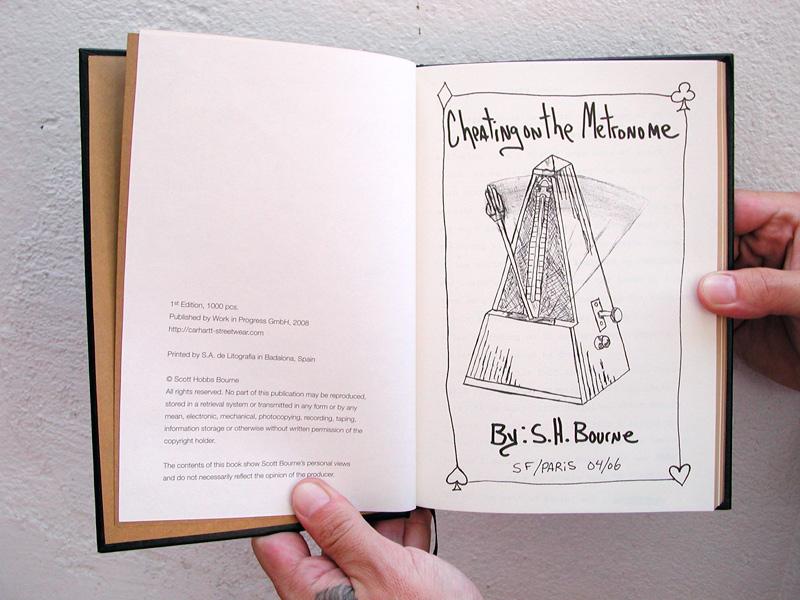 1st Edition, 1000 pcs.
Published by Work in Progress GmbH, 2008
http://carhartt-streetwear.com
Printed by S.A. de Litografia in Badalona, Spain
© Scott Hobbs Bourne
All rights reserved. No part of this publication may be reproduced,
stored in a retrieval system or transmitted in any form or by any
mean, electronic, mechanical, photocopying, recording, taping,
information storage or otherwise without written permission of the
copyright holder.
The contents of this book show Scott Bourne's personal views
and do not necessarily reflect the opinion of the producer.
Cheating on the Metronome
By: S.H. Bourne
SF/PARIS 04/06